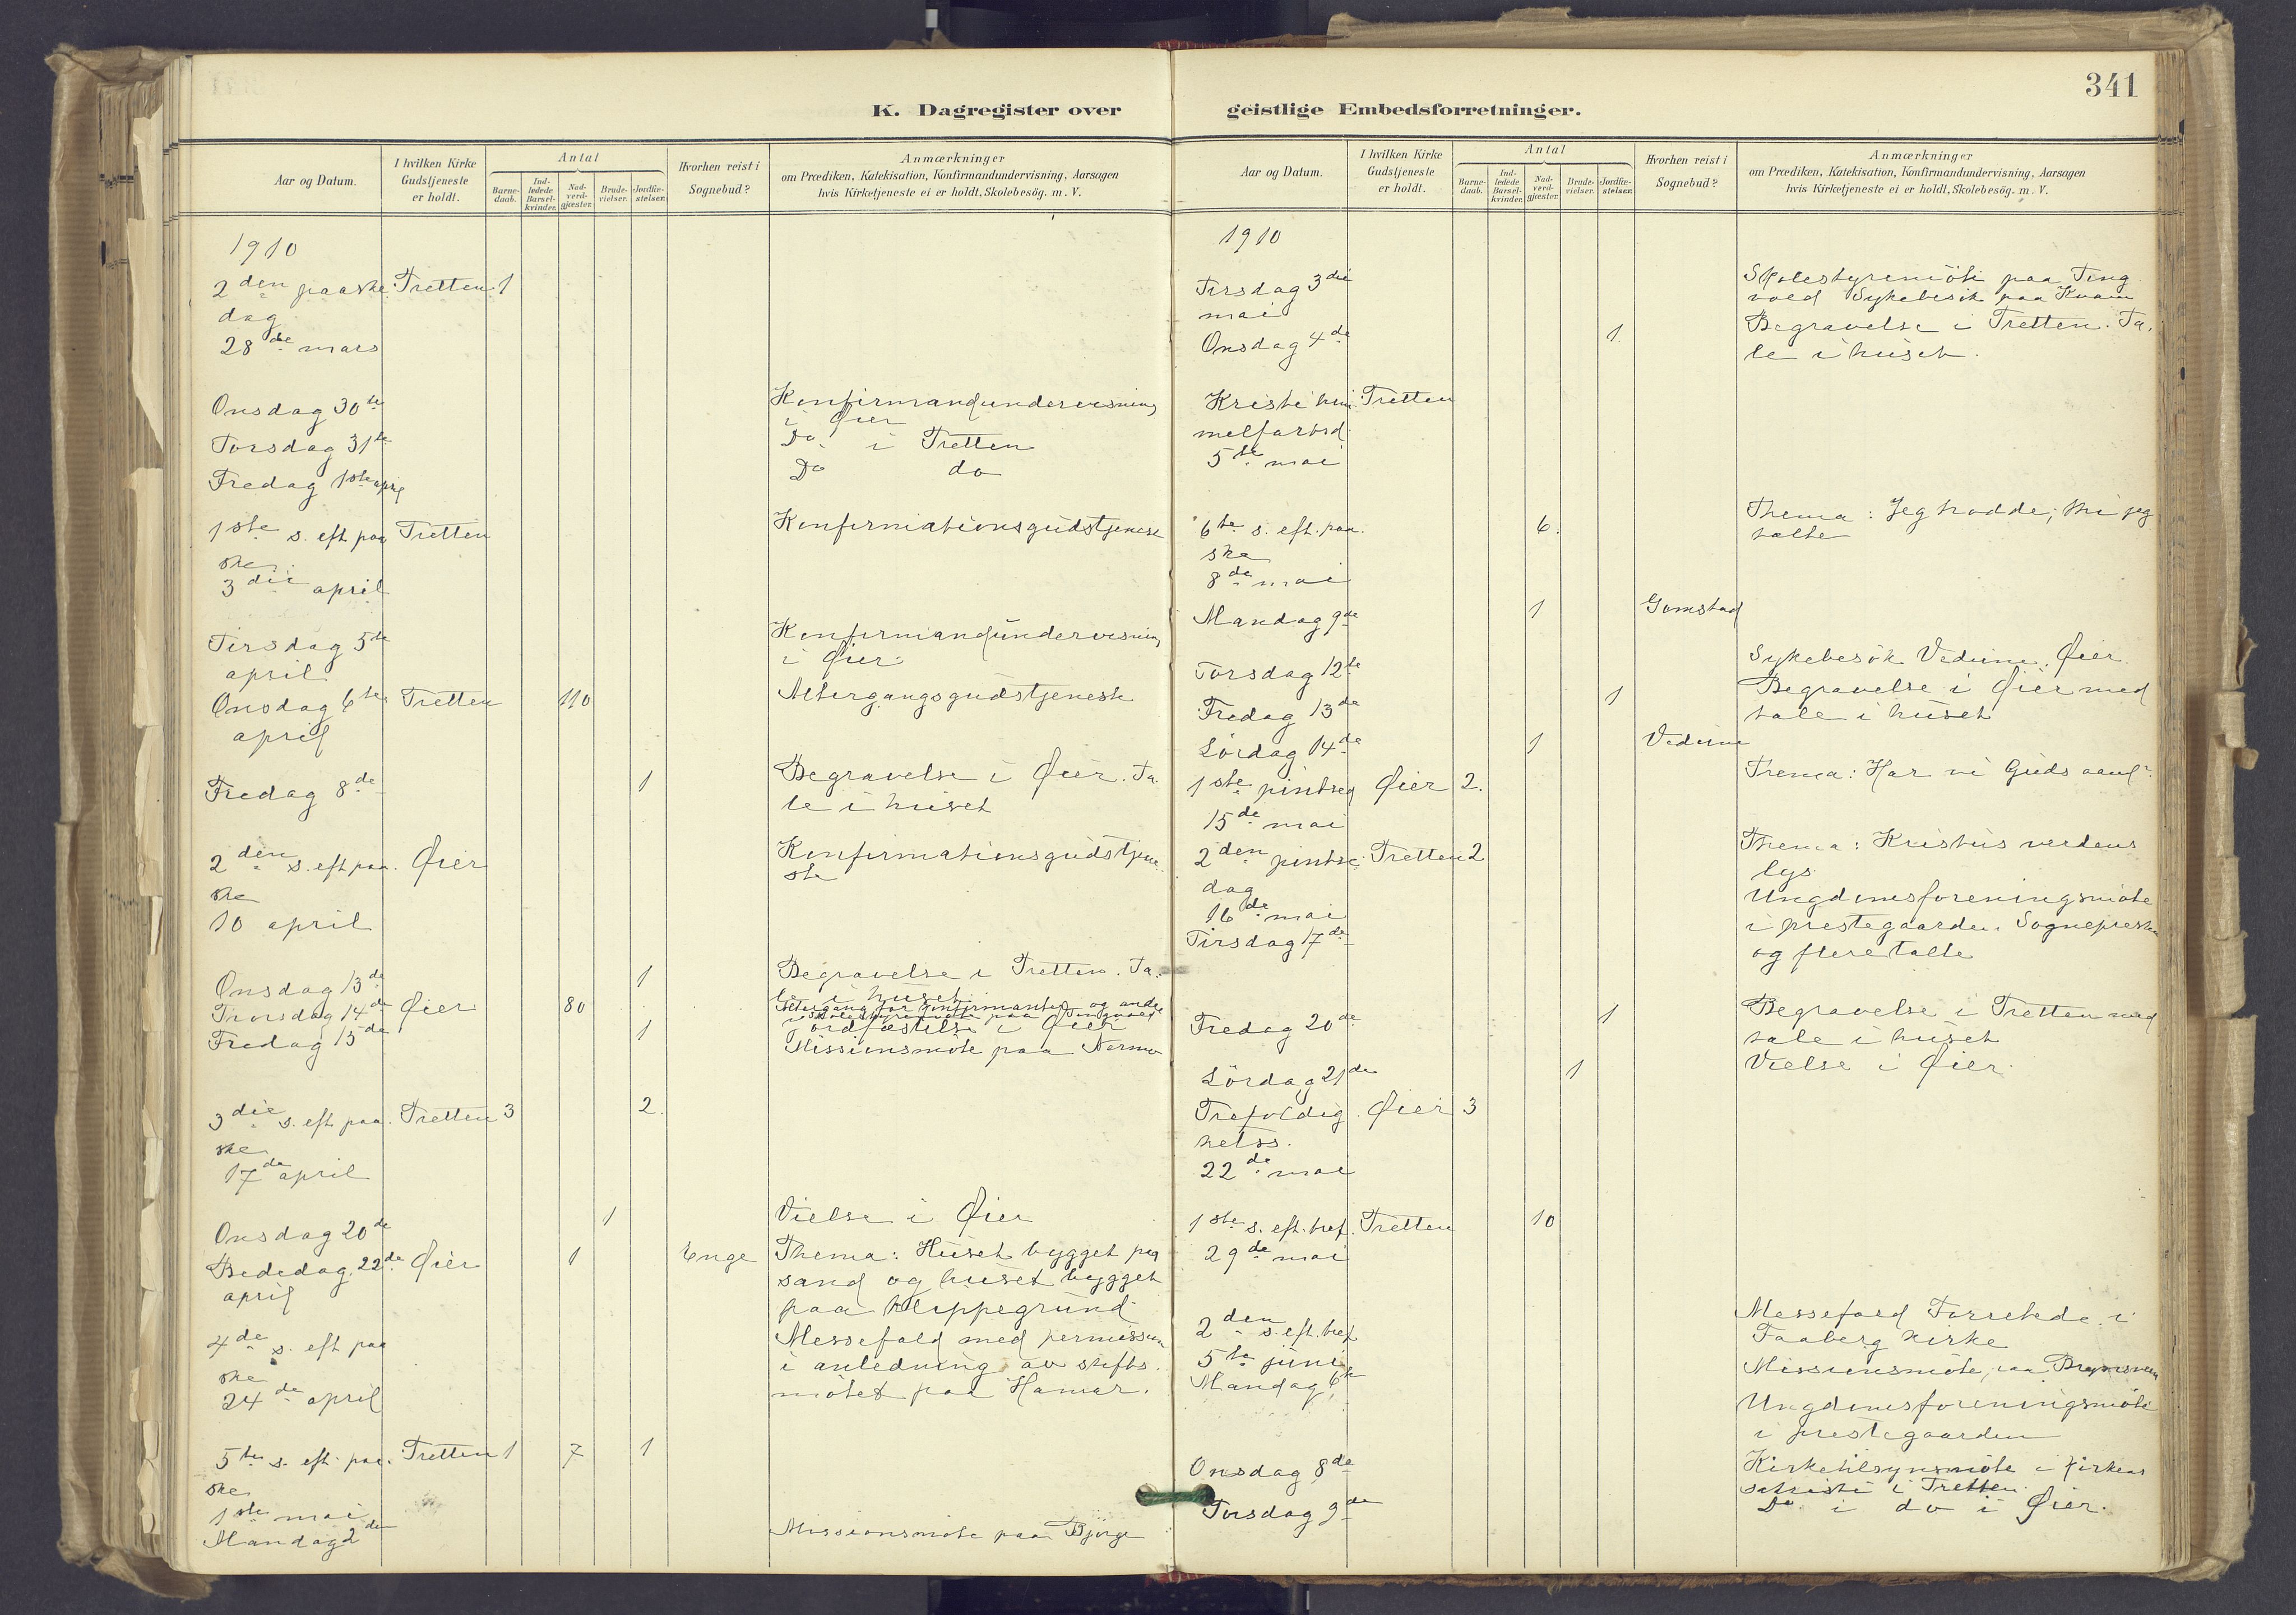 341
K. Dagregister over
geistlige Embedsforretninger.
Aar og Datum.
I hvilken Kirke
Gudstjeneste
er holdt.
Antal
Barne-
daab.
Ind-
ledede
Barsel-
kvinder.
Nad-
verd-
gjæster.
Brude-
vielser.
Jordfæ-
stelser.
Hvorhen reist i
Sognebud?
Anmærkninger
om Prædiken, Katekisation, Konfirmandundervisning, Aarsagen
hvis Kirketjeneste ei er holdt, Skolebesög. m. V.
1910
2den paaske Tretten 1
dag
28de mars
Onsdag 30te Konfirmandundervisning
i Øier
Torsdag 31te Do i Tretten
Fredag 1ste april Do do
1ste s. eft. paa Tretten Konfirmationsgudstjeneste
ske
3die april
Tirsdag 5te Konfirmandundervisning
april i Øier
Onsdag 6te Tretten 110 Altergangsgudstjeneste
april
Fredag 8de 1 Begravelse i Øier. Ta-
le i huset
2den s. eft. paa. Øier Konfirmationsgudstjene
ske ste
10 april
Onsdag 13de 1 Begravelse i Tretten. Ta-
le i huset
Torsdag 14de Øier 80 Altergang for konfirmanter og andre
Skolestyremöte paa Tingvold
Fredag 15de 1 Jordfæstelse i Øier
Missionsmöte paa
3die s. eft. paa. Tretten 3 2.
ske
17de april
Onsdag 20de 1 Vielse i Øier
Bededag 22de Øier 1 Enge Thema: Huset bygget paa
april sand og huset bygget
paa klippegrund
4de s. eft. paa Messefald med permission
ske i anledning av stifts-
24de april mötet paa Hamar.
5te s. eft. paa. Tretten 1 7 1
ske
1ste mai
Mandag 2den Missionsmöte paa Bjørge
Aar og Datum.
I hvilken Kirke
Gudstjeneste
er holdt.
Antal
Barne-
daab.
Ind-
ledede
Barsel-
kvinder.
Nad-
verd-
gjæster.
Brude-
vielser.
Jordfæ-
stelser.
Hvorhen reist i
Sognebud?
Anmærkninger
om Prædiken, Katekisation, Konfirmandundervisning, Aarsagen
hvis Kirketjeneste ei er holdt, Skolebesög. m. V.
1910
Tirsdag 3die Skolestyremöte paa Ting
mai vold Sykebesök paa Kvam
Onsdag 4de 1. Begravelse i Tretten. Ta-
le i huset.
Kristi him Tretten
melfartsd.
5te mai
6te s. eft. paa. 6. Thema: Jeg trodde; thi jeg
ske talte
8de mai
Mandag 9de 1 Gomstad
Torsdag 12te Sykebesök Vedum. Øier.
Fredag 13de 1 Begravelse i Øier med
tale i huset
Lördag 14de 1
1ste pintsed Øier 2. Thema: Har vi Guds aand?
15de mai
2den pintse Tretten 2 Thema: Kristus verdens
dag lys
16de mai
Tirsdag 17de Ungdomsforeningsmöte
i prestegaarden. Sognepresten
og flere talte
Fredag 20de 1 Begravelse i Tretten med
tale i huset
Lördag 21de 1 Vielse i Øier.
Trefoldig Øier 3
hetss.
22de mai
1ste s. eft. tref. Tretten 10
29de mai
2den s. eft. tref Messefald Forrettede i
5te juni Faaberg kirke
Mandag 6te Missionsmöte paa
Ungdomsforeningsmöte
i prestegaarden
Onsdag 8de Kirketilsynsmöte i kirkens
sakristi i Tretten.
Torsdag 9de Do i do i Øier.